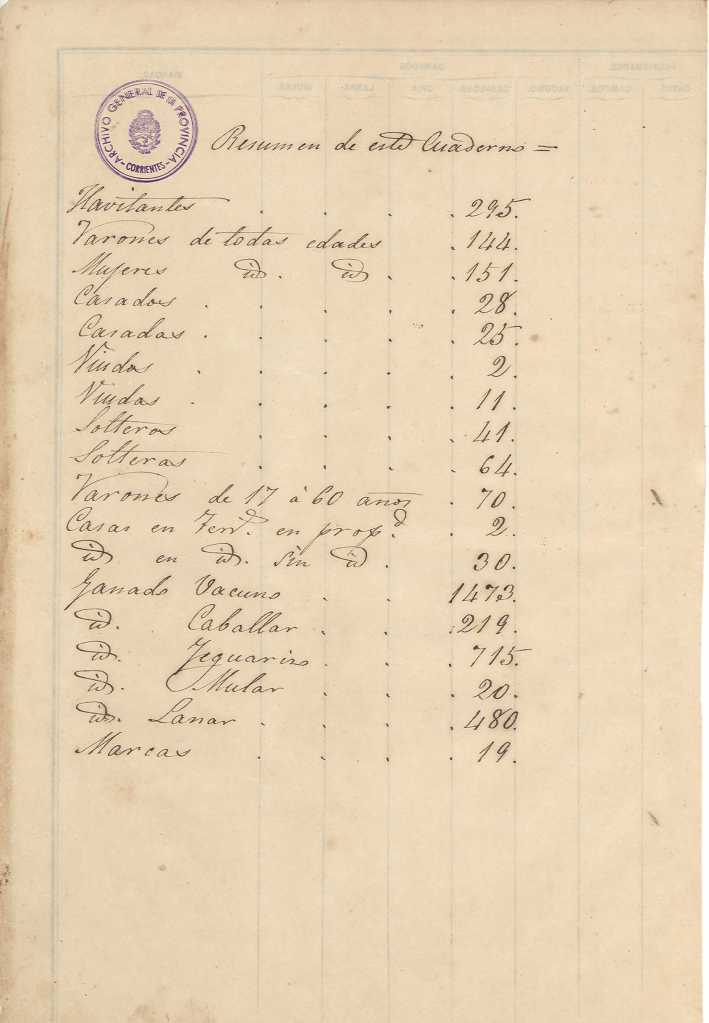 ARCHIVO GENERAL DE LA PROVINCIA
-CORRIENTES-
Resumen de este Cuaderno =
Havitantes . . . . 295.
Varones de todas edades . 144.
Mujeres id. id . . 151.
Casados . . . . . 28.
Casadas . . . . . 25.
Viudos . . . . . 2.
Viudas . . . . . 11.
Solteros . . . . 41.
Solteras . . . . 64.
Varones de 17 á 60 años . 70.
Casas en Terr.º en prop.d . 2.
id en id. sin id . 30.
Ganado Vacuno . . 1473.
id. Caballar . . . 219.
id. Yeguarizo . . . 715.
id. Mular . . . 20.
id. Lanar . . . . 480.
Marcas . . . . 19.